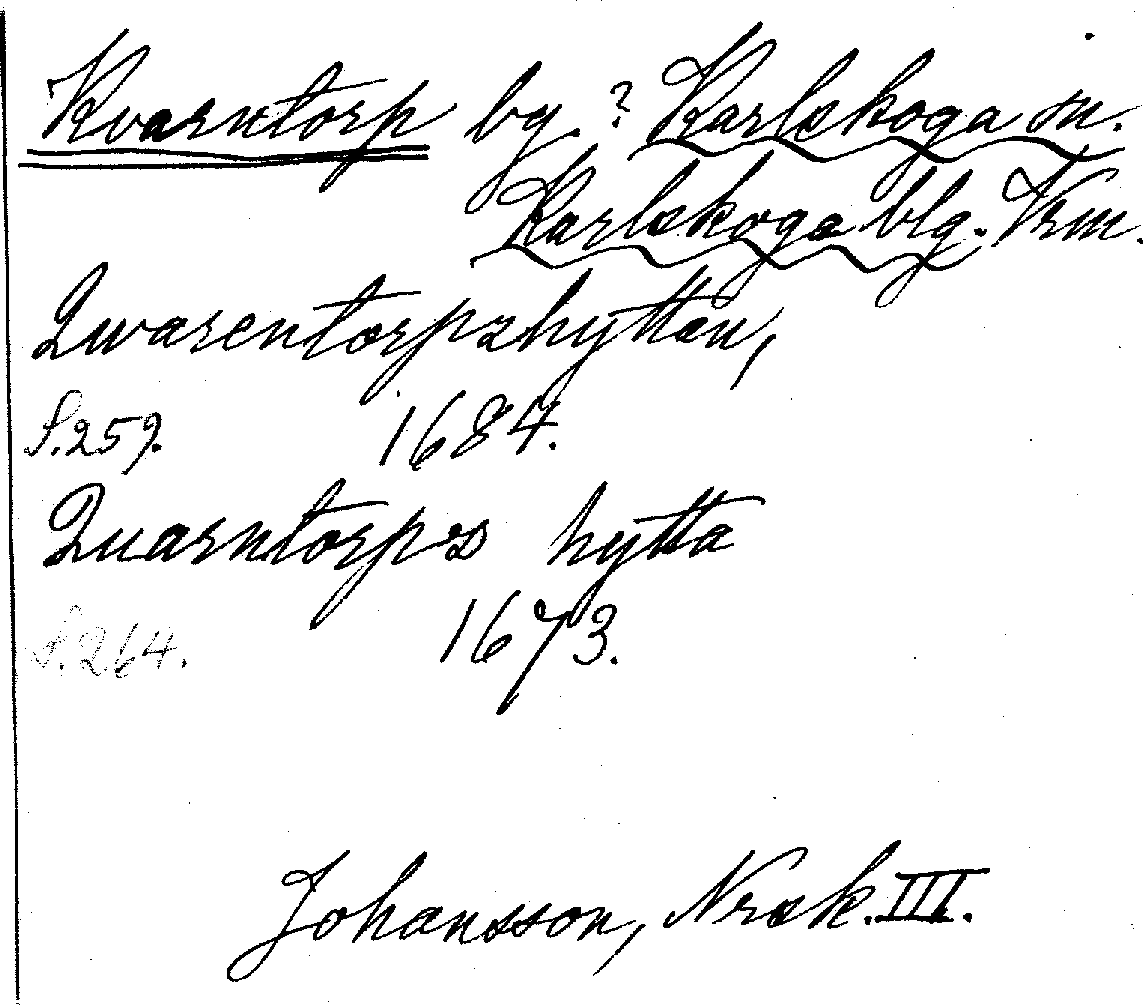 Kvarntorp by. ? Karlskoga sn.
Karlskoga blg. Vrm.
Qwarentorpzhyttan,
S. 259. 1684.
Quarntorps hytta
S. 264. 1673.
Johansson, Nrsk. III.